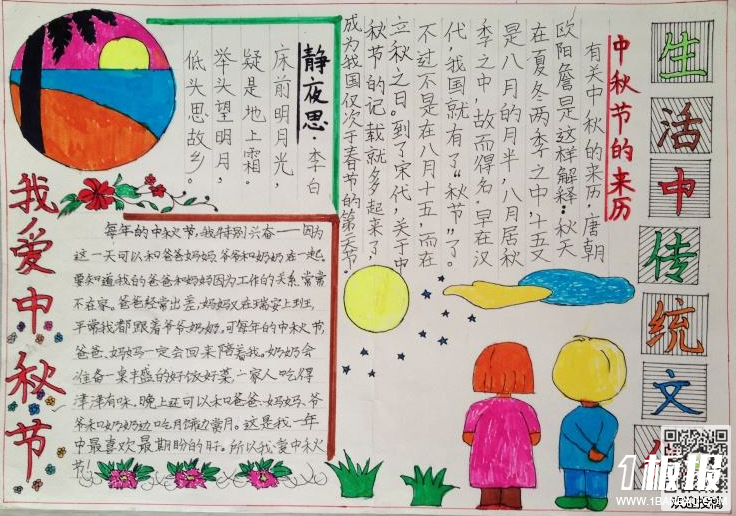 生活中传统文
中秋节的来历
有关中秋的来历，唐朝
欧阳詹是这样解释：秋天
在夏冬两季之中，十五又
是八月的月半，八月居秋
季之中，故而得名。早在汉
代，我国就有了“秋节”了。
不过不是在八月十五，而在
立秋之日。到了宋代，关于中
秋节的记载就多起来了，
成为我国仅次于春节的第二大节。
静夜思·李白
床前明月光，
疑是地上霜。
举头望明月，
低头思故乡。
我爱中秋节
每年的中秋节，我特别兴奋——因为
这一天可以和爸爸妈妈、爷爷和奶奶在一起。
要知道我的爸爸和妈妈因为工作的关系，常常
不在家。爸爸经常出差，妈妈又在瑞安上班，
平常我都跟着爷爷、奶奶。可每年的中秋节，
爸爸、妈妈一定会回来陪着我。奶奶会
准备一桌丰盛的好饭好菜，一家人吃得
津津有味。晚上还可以和爸爸、妈妈、爷
爷和奶奶边吃月饼边赏月。这是我一年
中最喜欢最期盼的时。所以我爱中秋
节！
1板报
WWW.1BANBAO.COM
欢迎投稿